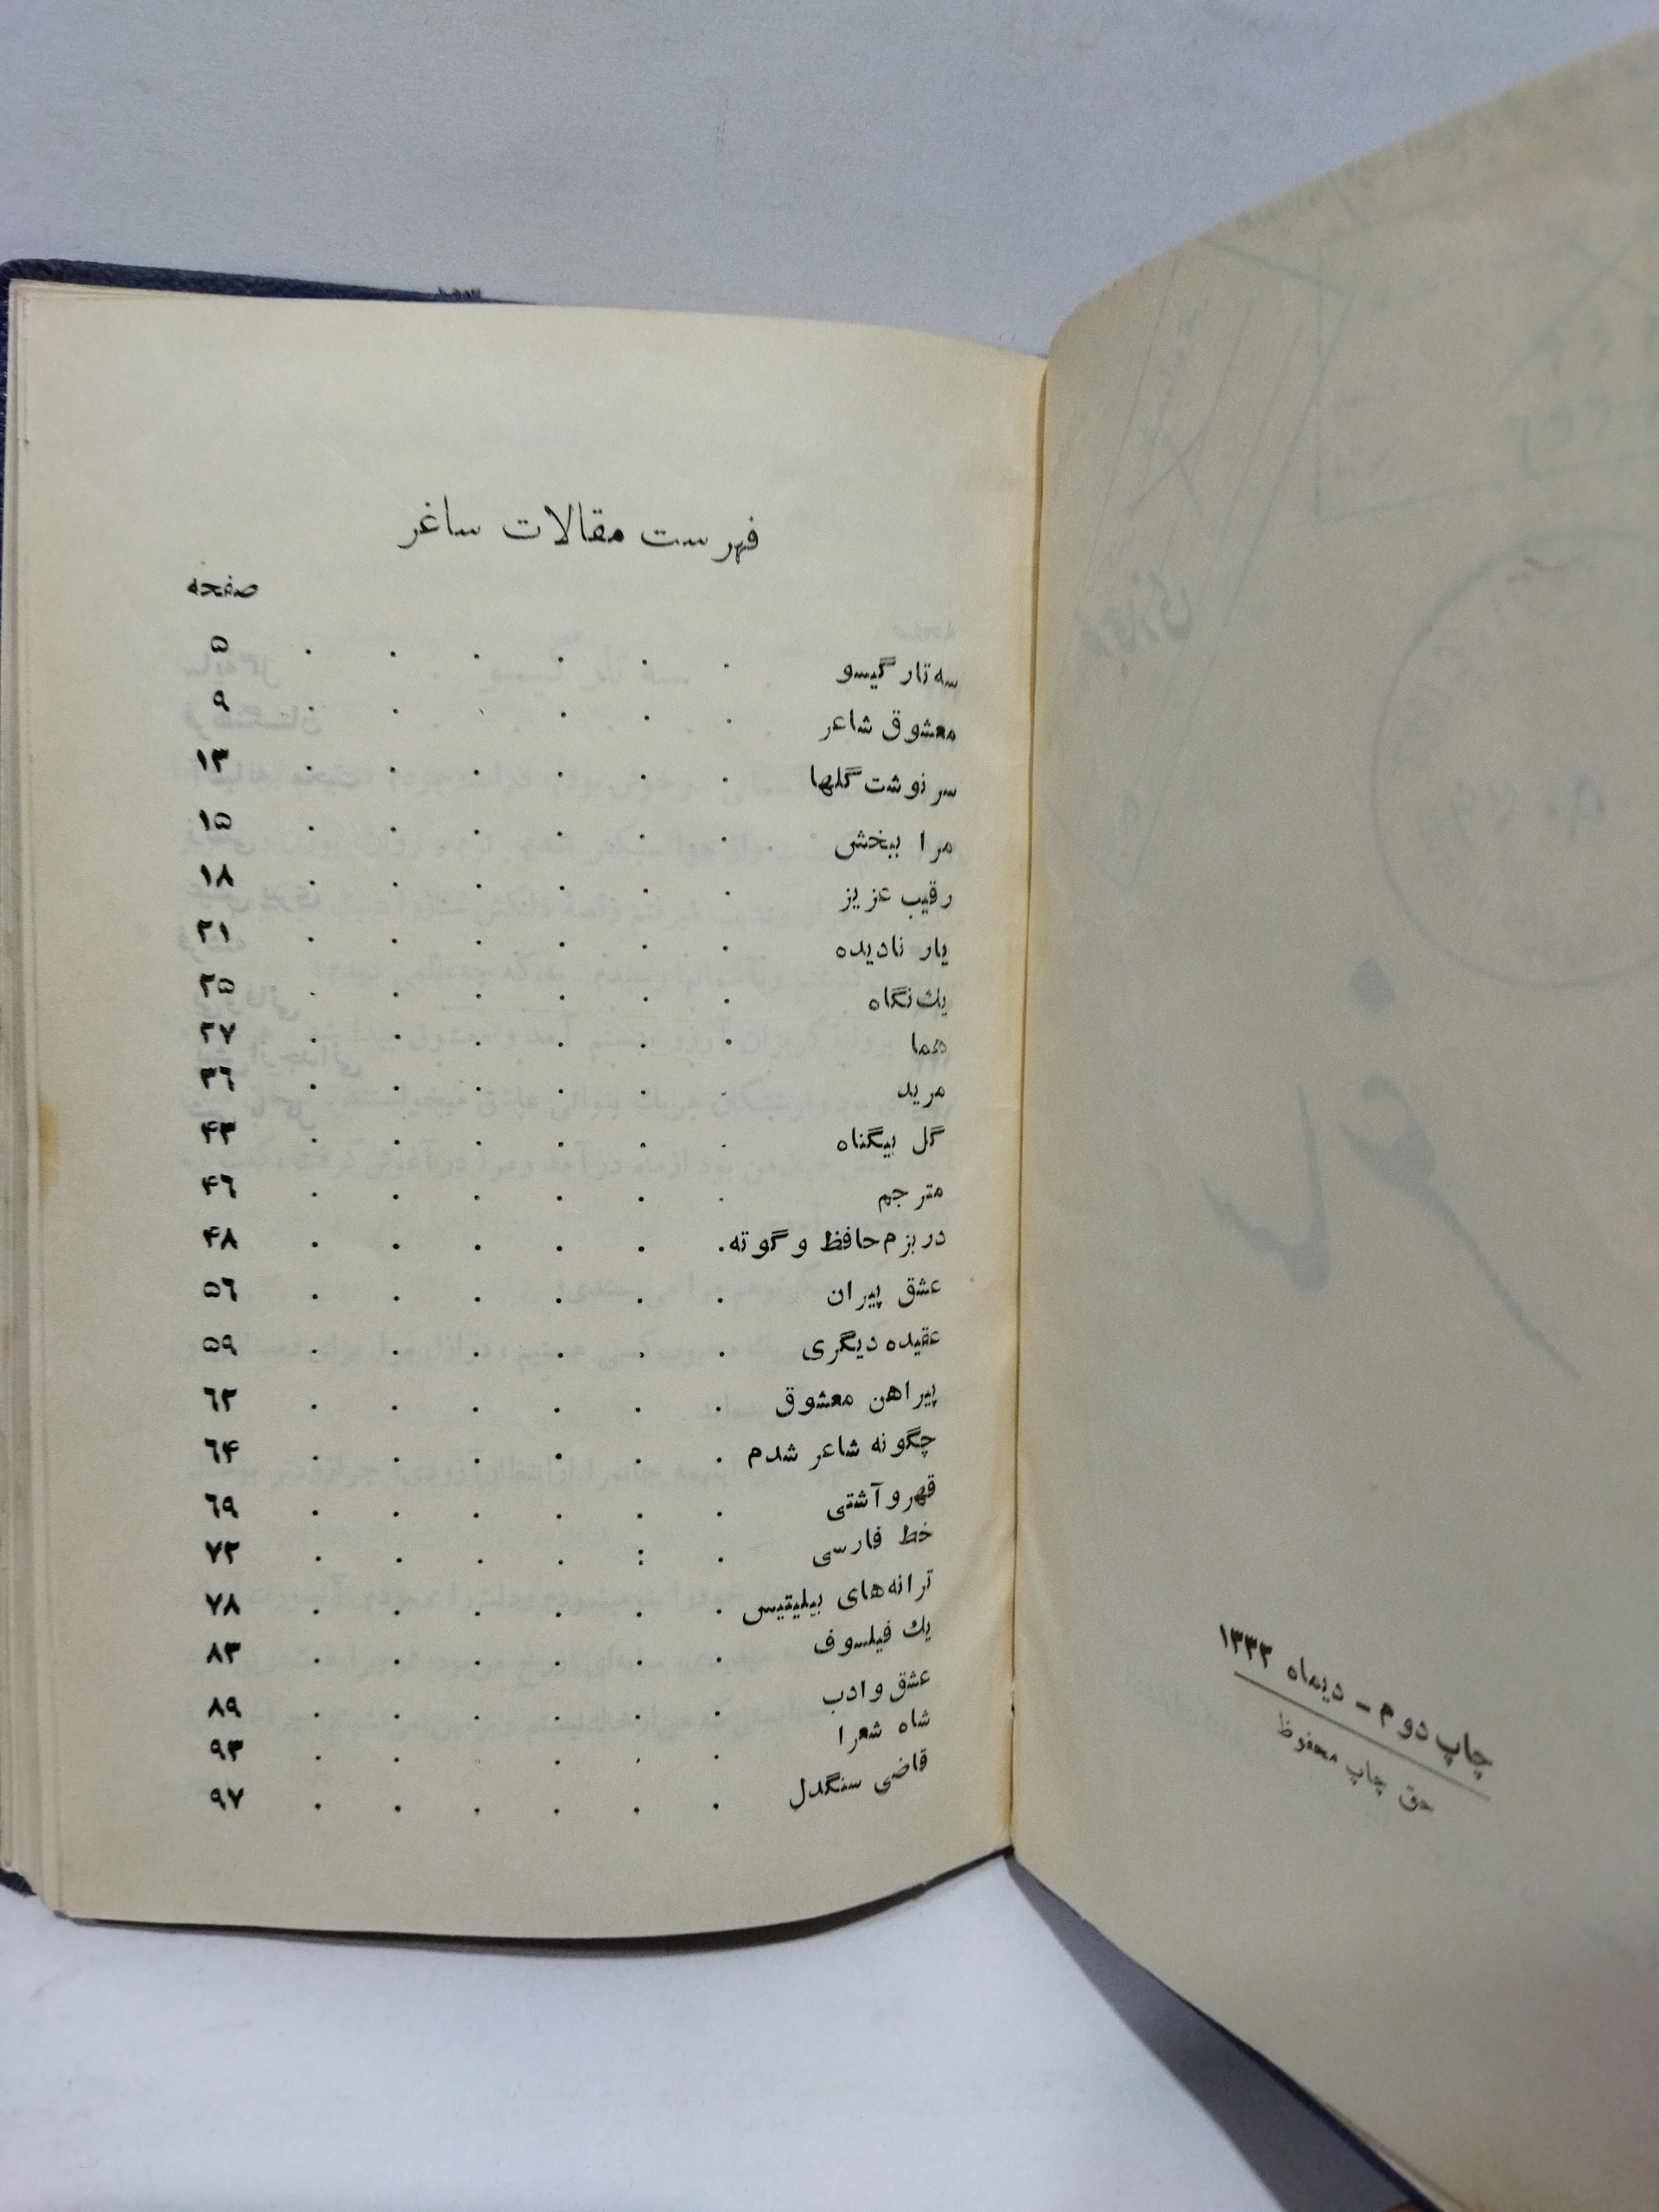 چاپ دوم – دیماه ۱۳۳۲
حق چاپ محفوظ
فهرست مقالات ساغر
صفحه
سه تار گیسو . . . . . . ۵
معشوق شاعر . . . . . . ۹
سرنوشت گلها . . . . . . ۱۳
مرا ببخش . . . . . . ۱۵
رقیب عزیز . . . . . . ۱۸
یار نادیده . . . . . . ۲۱
یك نگاه . . . . . . ۲۵
هما . . . . . . ۲۷
مرید . . . . . . ۳۶
گل بیگناه . . . . . . ۴۳
مترجم . . . . . . ۴۶
در بزم حافظ و گوته . . . . . . ۴۸
عشق پیران . . . . . . ۵۶
عقیده دیگری . . . . . . ۵۹
پیراهن معشوق . . . . . . ۶۲
چگونه شاعر شدم . . . . . . ۶۴
قهر و آشتی . . . . . . ۶۹
خط فارسی . : . . . . ۷۲
ترانه‌های بیلیتیس . . . . . . ۷۸
یك فیلسوف . . . . . . ۸۳
عشق و ادب . . . . . . ۸۹
شاه شعرا . . . . . . ۹۳
قاضی سنگدل . . . . . . ۹۷